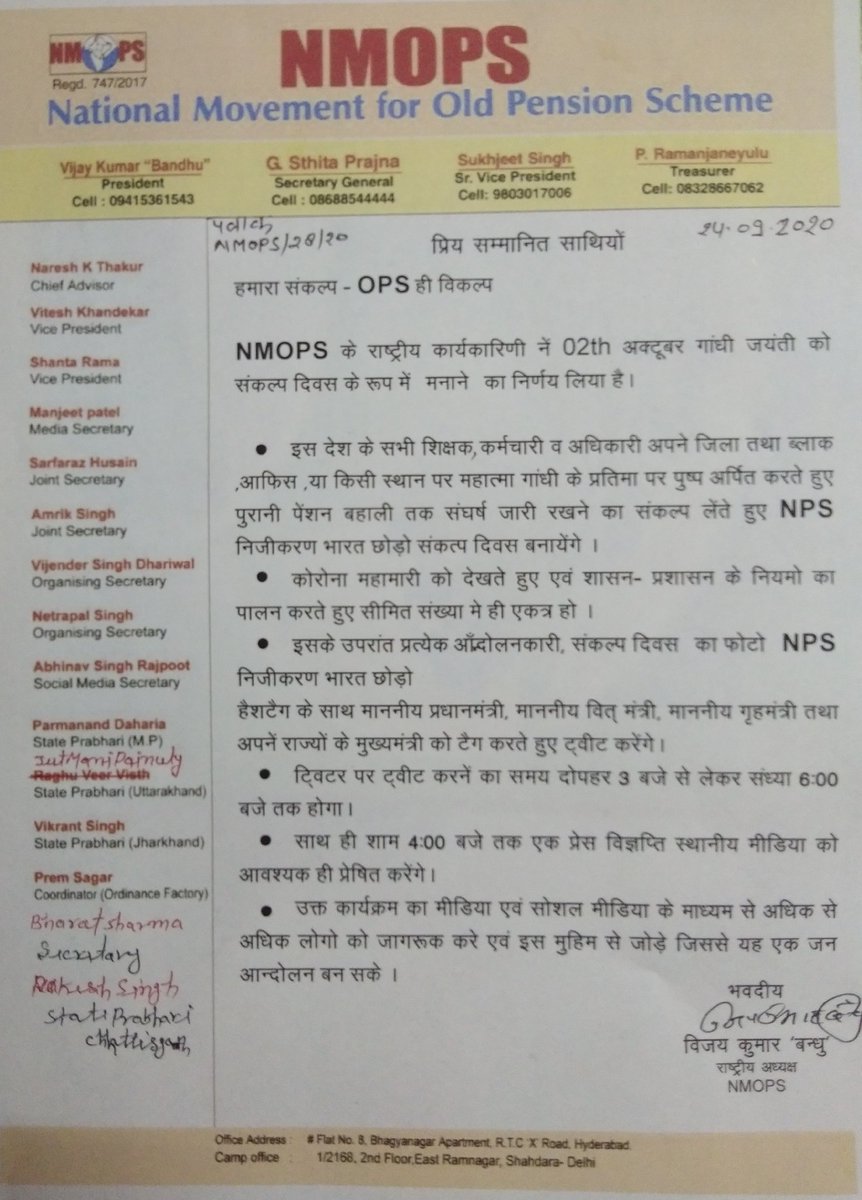 NMOPS
Regd. 747/2017
NMOPS
National Movement for Old Pension Scheme
Vijay Kumar "Bandhu"
President
Cell : 09415361543
G. Sthita Prajna
Secretary General
Cell : 08688544444
Sukhjeet Singh
Sr. Vice President
Cell: 9803017006
P. Ramanjaneyulu
Treasurer
Cell: 08328667062
पत्रांक
NMOPS/28/20
24.09.2020
प्रिय सम्मानित साथियों
हमारा संकल्प - OPS ही विकल्प
NMOPS के राष्ट्रीय कार्यकारिणी नें 02th अक्टूबर गांधी जयंती को
संकल्प दिवस के रूप में मनाने का निर्णय लिया है।
• इस देश के सभी शिक्षक,कर्मचारी व अधिकारी अपने जिला तथा ब्लाक
,आफिस ,या किसी स्थान पर महात्मा गांधी के प्रतिमा पर पुष्प अर्पित करते हुए
पुरानी पेंशन बहाली तक संघर्ष जारी रखने का संकल्प लेंते हुए NPS
निजीकरण भारत छोड़ो संकत्प दिवस बनायेंगे ।
• कोरोना महामारी को देखते हुए एवं शासन- प्रशासन के नियमो का
पालन करते हुए सीमित संख्या मे ही एकत्र हो ।
• इसके उपरांत प्रत्येक आँन्दोलनकारी, संकल्प दिवस का फोटो NPS
निजीकरण भारत छोड़ो
हैशटैग के साथ माननीय प्रधानमंत्री, माननीय वित् मंत्री, माननीय गृहमंत्री तथा
अपनें राज्यों के मुख्यमंत्री को टैग करते हुए ट्वीट करेंगे।
• टि्वटर पर ट्वीट करनें का समय दोपहर 3 बजे से लेकर संध्या 6:00
बजे तक होगा।
• साथ ही शाम 4:00 बजे तक एक प्रेस विज्ञप्ति स्थानीय मीडिया को
आवश्यक ही प्रेषित करेंगे।
• उक्त कार्यक्रम का मीडिया एवं सोशल मीडिया के माध्यम से अधिक से
अधिक लोगो को जागरूक करे एवं इस मुहिम से जोड़े जिससे यह एक जन
आन्दोलन बन सके ।
भवदीय
विजय कुमार 'बन्धु'
राष्ट्रीय अध्यक्ष
NMOPS
Naresh K Thakur
Chief Advisor
Vitesh Khandekar
Vice President
Shanta Rama
Vice President
Manjeet patel
Media Secretary
Sarfaraz Husain
Joint Secretary
Amrik Singh
Joint Secretary
Vijender Singh Dhariwal
Organising Secretary
Netrapal Singh
Organising Secretary
Abhinav Singh Rajpoot
Social Media Secretary
Parmanand Daharia
State Prabhari (M.P)
Raghu Veer Visth
State Prabhari (Uttarakhand)
Vikrant Singh
State Prabhari (Jharkhand)
Prem Sagar
Coordinator (Ordinance Factory)
Bharat sharma
Secretary
Rakesh Singh
State Prabhari
Office Address : # Flat No. 8, Bhagyanagar Apartment, R.T.C 'X' Road, Hyderabad.
Camp office : 1/2168, 2nd Floor,East Ramnagar, Shahdara- Delhi